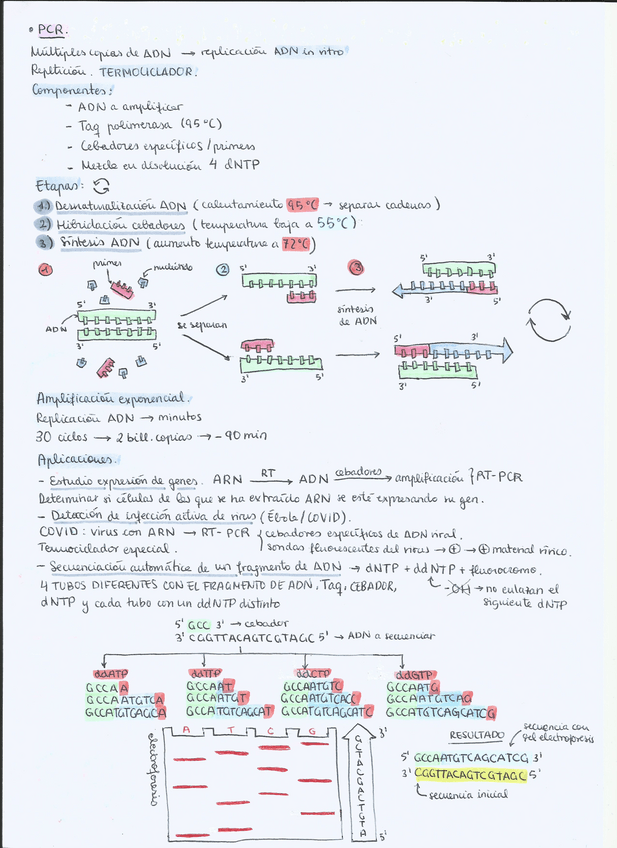 • PCR.
Múltiples copias de ADN → replicación ADN in vitro
Repetición. TERMOCICLADOR.
Componentes:
- ADN a amplificar
- Taq polimerasa (95°C)
- Cebadores específicos / primers
- Mezcla en disolución 4 dNTP
Etapas:
1) Desnaturalización ADN (calentamiento 95°C → separar cadenas)
2) Hibridación cebadores (temperatura baja a 55°C)
3) Síntesis ADN (aumento temperatura a 72°C)
1 primer nucleótido 2 3
5' 3' ADN 3' 5'
se separan
5' 3'
3' 5'
síntesis de ADN
5' 3'
3' 5'
5' 3'
3' 5'
Amplificación exponencial.
Replicación ADN → minutos
30 ciclos → 2 bill. copias → ~ 90 min
Aplicaciones.
- Estudio expresión de genes. ARN RT→ ADN cebadores→ amplificación } RT-PCR
Determinar si células de las que se ha extraído ARN se esté expresando un gen.
- Detección de infección activa de virus (Ébola/COVID).
COVID: virus con ARN → RT-PCR { cebadores específicos de ADN viral.
Termociclador especial. sondas fluorescentes del virus → + → + material vírico.
- Secuenciación automática de un fragmento de ADN → dNTP + ddNTP + fluorocromo.
4 TUBOS DIFERENTES CON EL FRAGMENTO DE ADN, Taq, CEBADOR, -OH → no enlazan el
dNTP y cada tubo con un ddNTP distinto siguiente dNTP
5' GCC 3' → cebador
3' CGGTTACAGTCGTAGC 5' → ADN a secuenciar
ddATP ddTTP ddCTP ddGTP
GCCAA GCCAAT GCCAATGTC GCCAATG
GCCAATGTCA GCCAATGT GCCAATGTCAGC GCCAATGTCAG
GCCATGTGAGCA GCCATGTCAGCAT GCCATGTCAGCATC GCCATGTCAGCATCG
A T C G
electroforesis
3'
GCTACGACTGTA
5'
RESULTADO
secuencia con gel electroforesis
5' GCCAATGTCAGCATCG 3'
3' CGGTTACAGTCGTAGC 5'
secuencia inicial